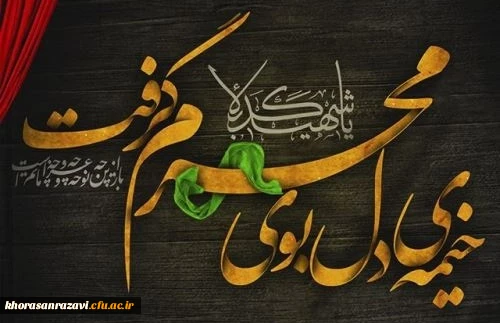 یا شهید کربلا
خیمه ی دل بوی
محرم گرفت
باز این چه نوحه و چه عزا و چه ماتم است
khorasanrazavi.cfu.ac.ir